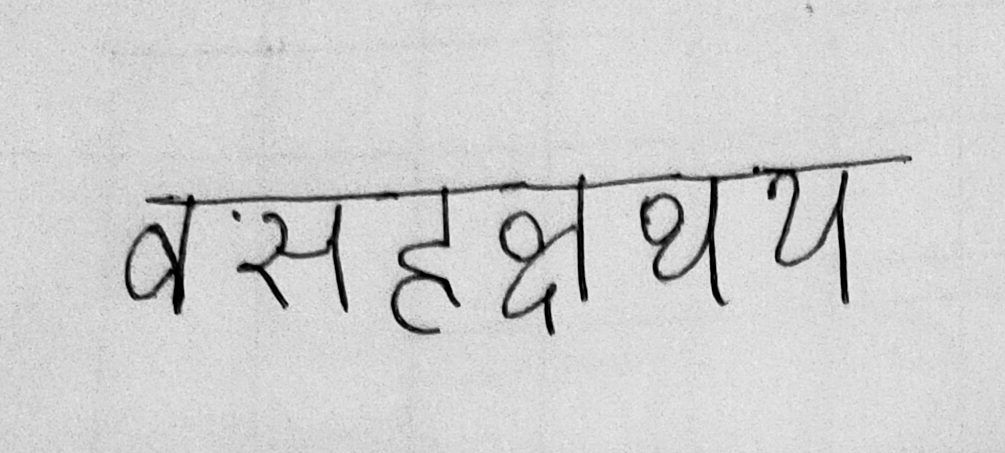 व स ह क्ष थ य